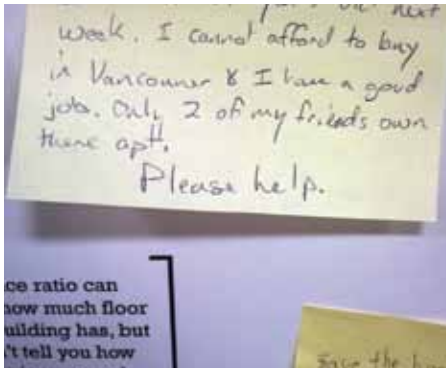 next
week. I cannot afford to buy
in Vancouver & I have a good
job. Only 2 of my friends own
there apt.
Please help.
ce ratio can
how much floor
uilding has, but
't tell you how
Save the